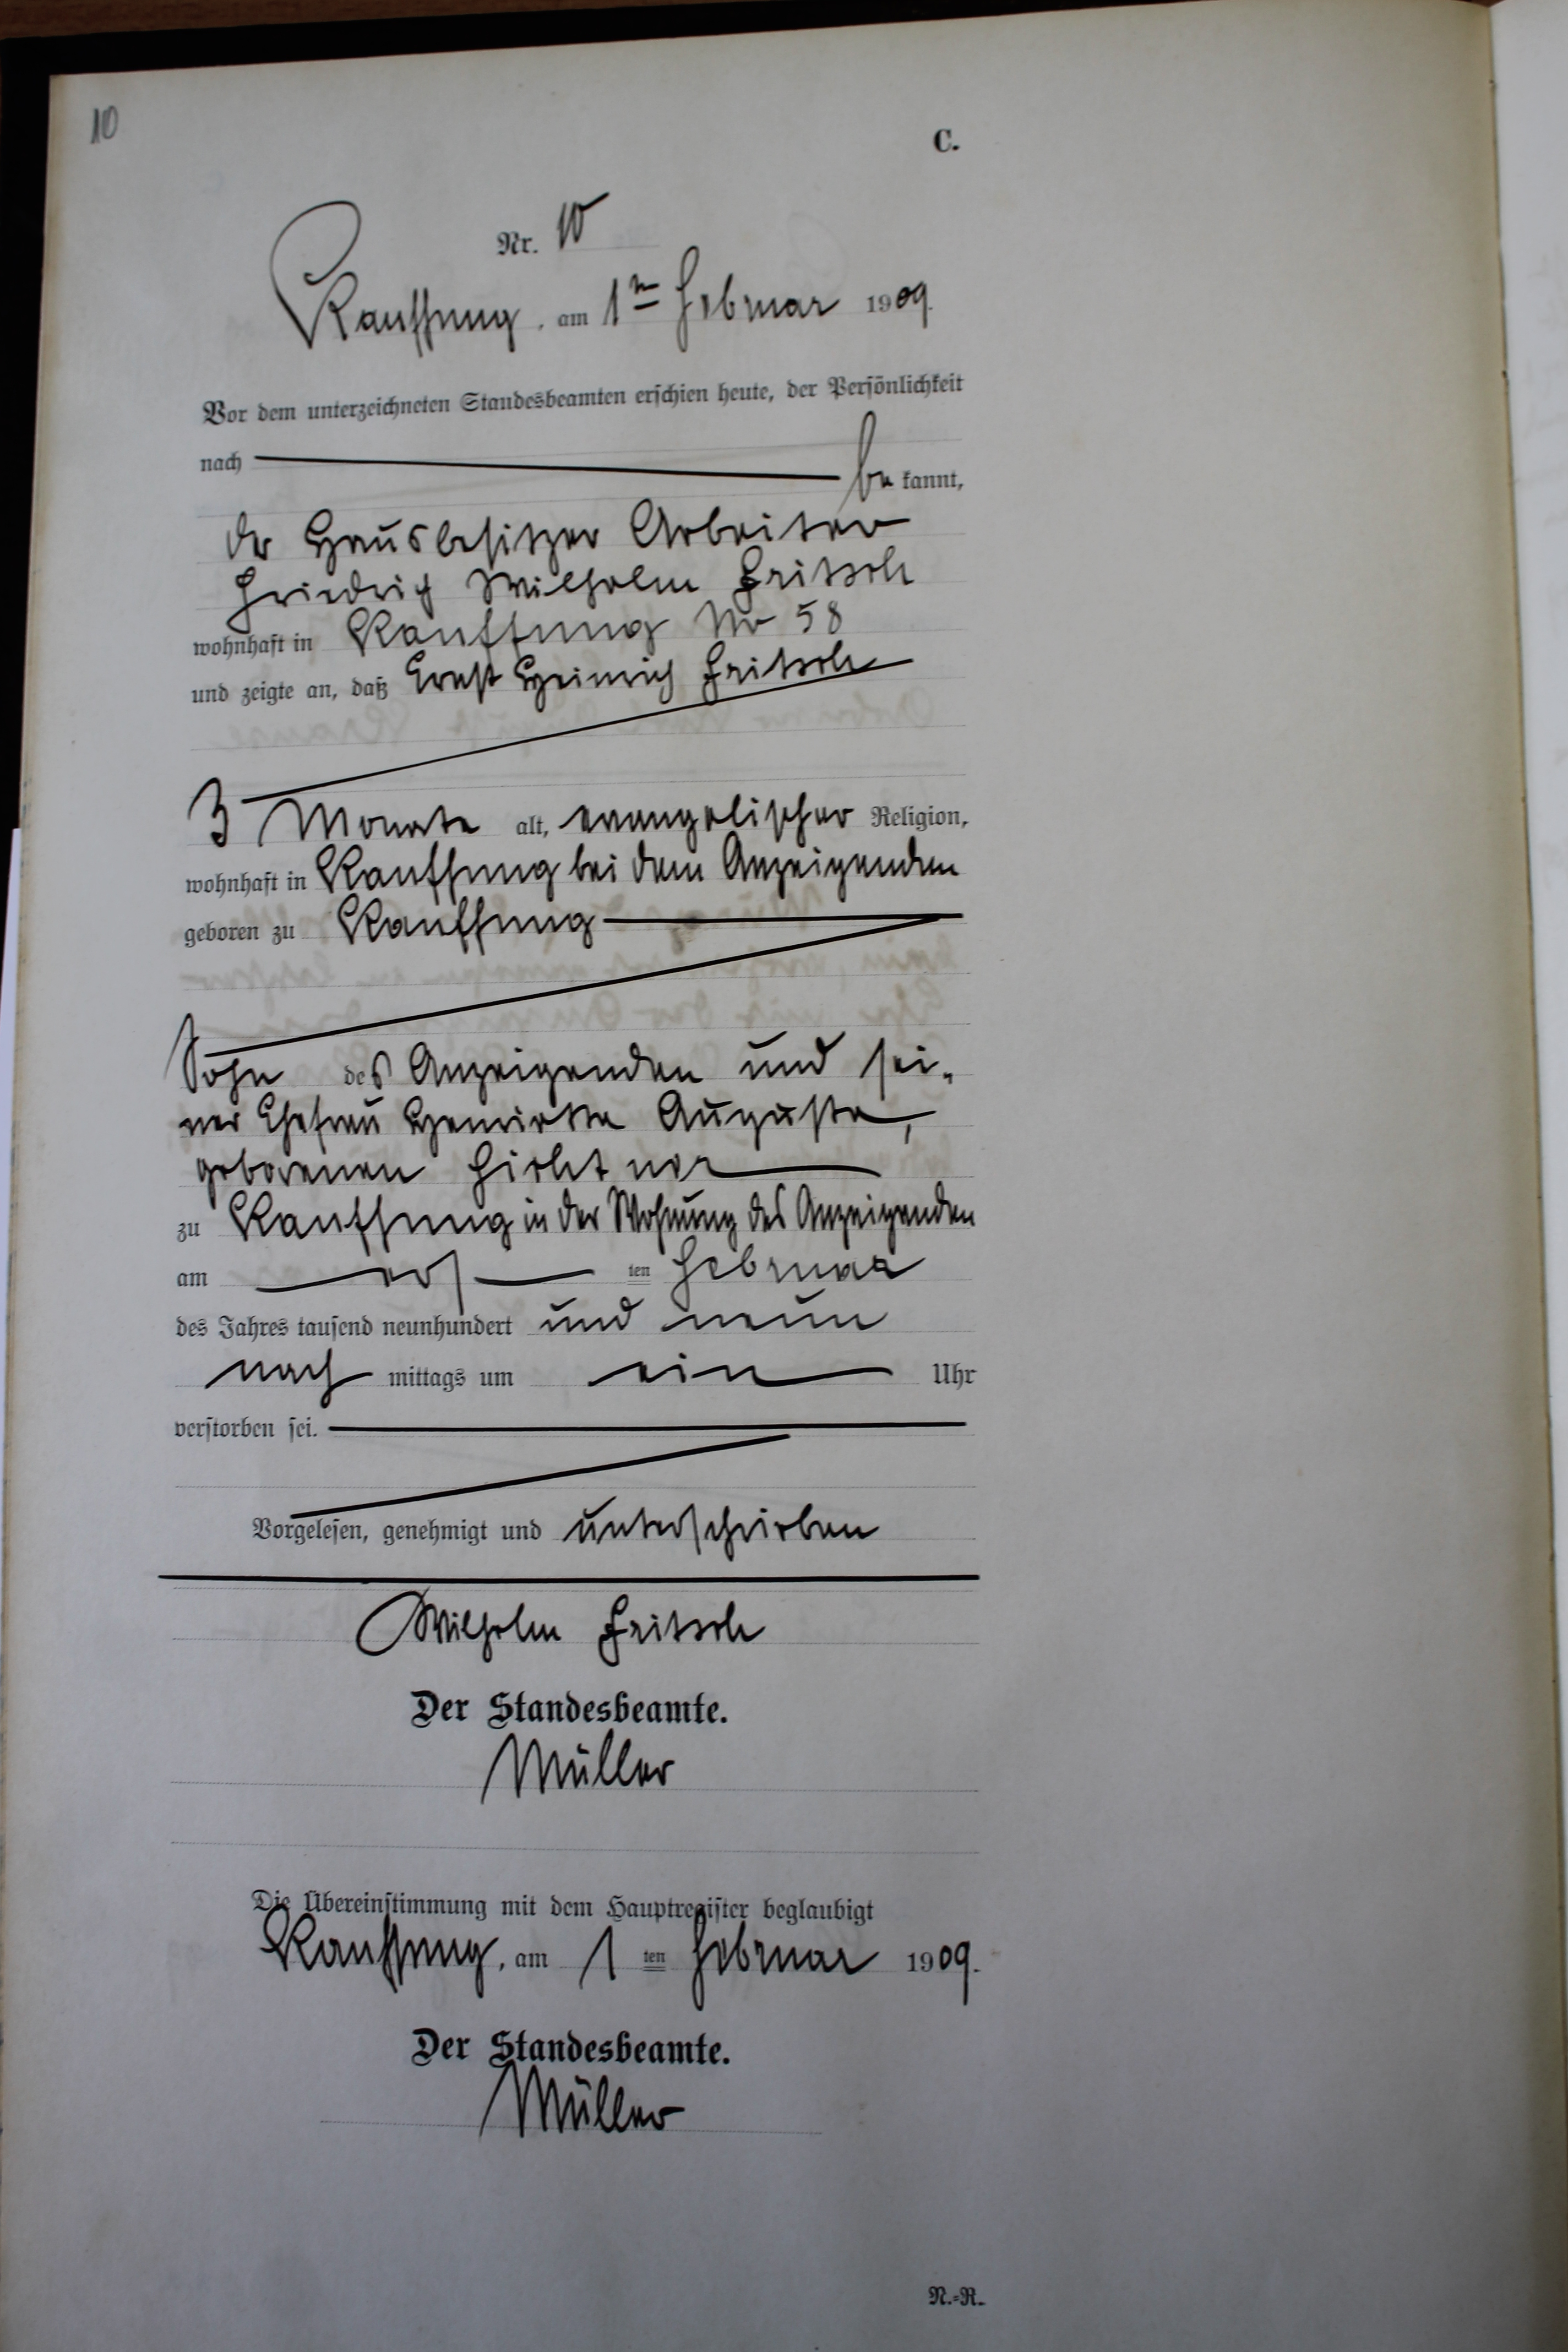 10
C.
Nr. 10
Kauffung, am 1ten Februar 1909.
Vor dem unterzeichneten Standesbeamten erschien heute, der Persönlichkeit
nach be kannt,
der Hausbesitzer Arbeiter
Friedrich Wilhelm Fritsch
wohnhaft in Kauffung No 58
und zeigte an, daß Ernst Heinrich Fritsch
3 Monate alt, evangelischer Religion,
wohnhaft in Kauffung bei dem Anzeigenden
geboren zu Kauffung
Sohn des Anzeigenden und sei-
ner Ehefrau Henriette Auguste,
geborenen
zu Kauffung in der Wohnung des Anzeigenden
am ers ten Februar
des Jahres tausend neunhundert und neun
nach mittags um ein Uhr
verstorben sei.
Vorgelesen, genehmigt und unterschrieben
Wilhelm Fritsch
Der Standesbeamte.
Müller
Die Übereinstimmung mit dem Hauptregister beglaubigt
Kauffung, am 1 ten Februar 1909.
Der Standesbeamte.
Müller
N.=R.